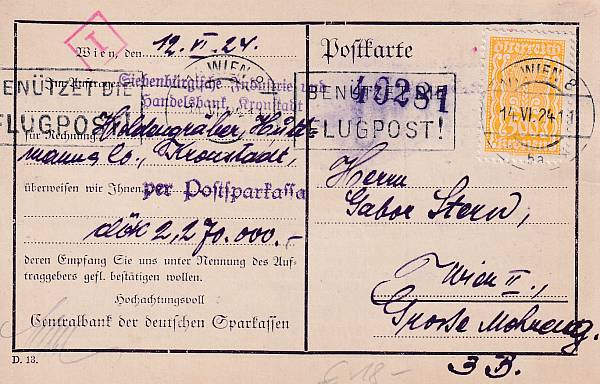 I
Wien, den 12. VI. 24.
Im Auftrage Siebenbürgische Industrie und
Handelsbank, Kronstadt
für Rechnung
mann & Co., Kronstadt,
überweisen wir Ihnen per Postsparkassa
dök 2,270.000.-
deren Empfang Sie uns unter Nennung des Auf-
traggebers gefl. bestätigen wollen.
Hochachtungsvoll
Centralbank der deutschen Sparkassen
D. 13.
BENÜTZET DIE
FLUGPOST!
WIEN 8
Postkarte
40281
BENÜTZET DIE
FLUGPOST!
österreich
500
Kronen
WIEN 8
14. VI. 24
8a
Herrn
Gabor Stern,
Wien II.,
Grosse Mohreng.
3 B.
€ 18-